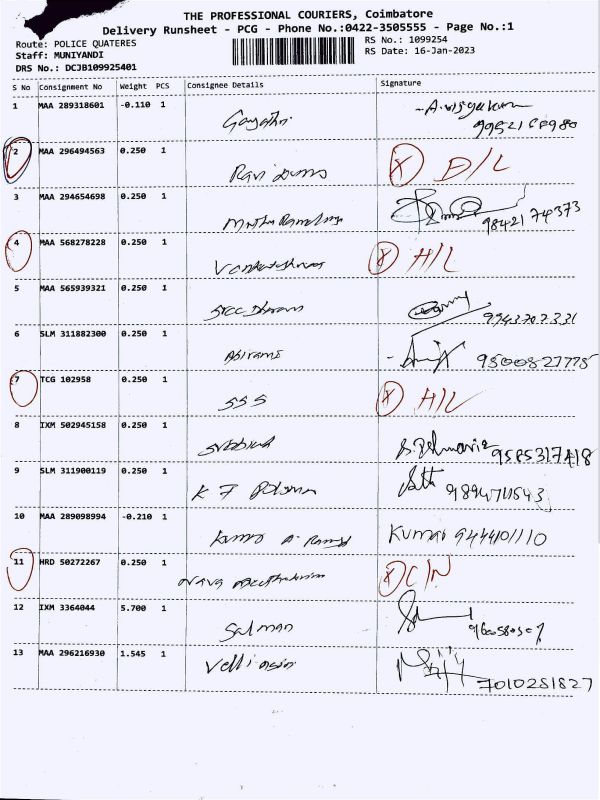 THE PROFESSIONAL COURIERS, Coimbatore
Delivery Runsheet - PCG - Phone No.:0422-3505555 - Page No.:1
Route: POLICE QUATERES
RS No.: 1099254
Staff: MUNIYANDI
RS Date: 16-Jan-2023
DRS No.: DCJB109925401
S No Consignment No Weight PCS Consignee Details Signature
1 MAA 289318601 -0.110 1 Gayathri
2 MAA 296494563 0.250 1 Ravi X D/L
3 MAA 294654698 0.250 1 9842174373
4 MAA 568278228 0.250 1 X H/L
5 MAA 565939321 0.250 1 Sree
6 SLM 311882300 0.250 1 Abirami 9500827775
7 TCG 102958 0.250 1 SSS X H/L
8 IXM 502945158 0.250 1 9585317418
9 SLM 311900119 0.250 1 K
10 MAA 289098994 -0.210 1 Kumar 9444101110
11 HRD 50272267 0.250 1 Nava X C/N
12 IXM 3364044 5.700 1 Salman
13 MAA 296216930 1.545 1 7010281827